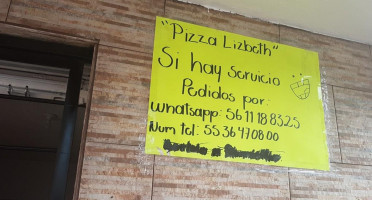 "Pizza Lizbeth"
Si hay servicio
Pedidos por:
whatsapp: 56 11 18 83 25
Num tel: 55 36 47 08 00